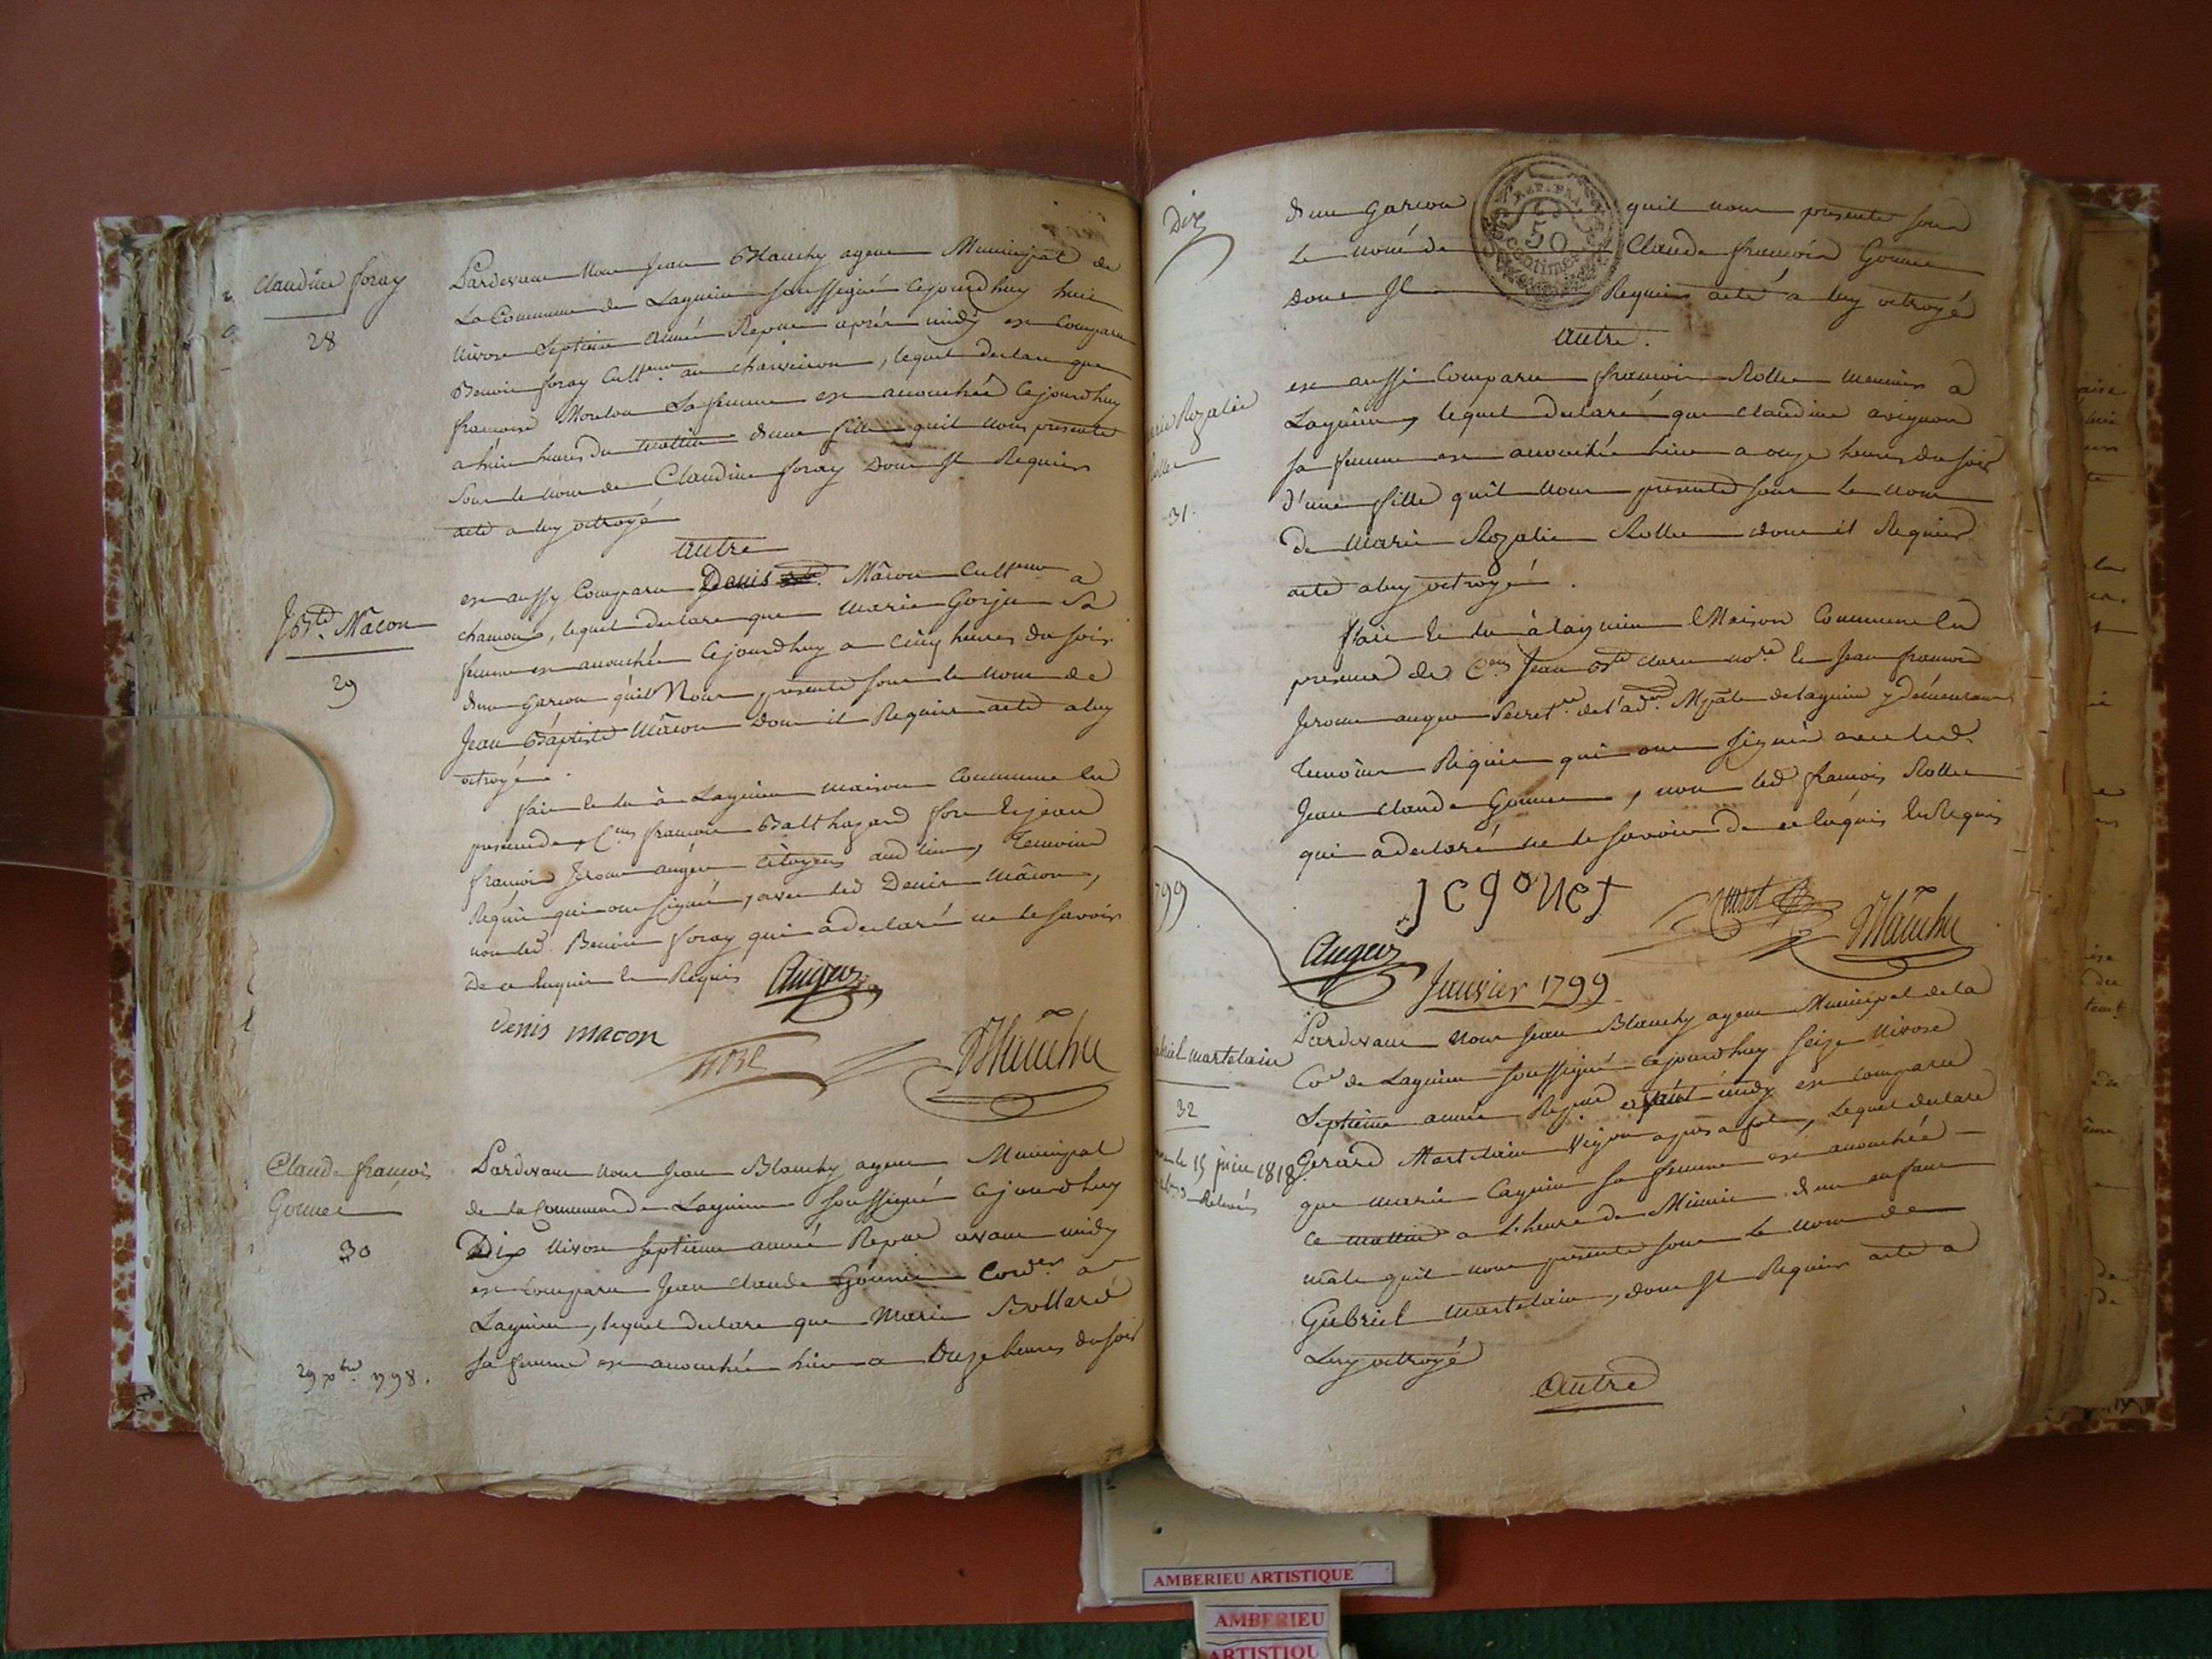 Claudine foray
28
Pardevant Nous Jean Blanchy agent Municipal de
La Commune de Lagnieu soussigné Cejourdhuy huit
Nivose Septieme année Repue après midy est Comparu
Benoit foray Cultteur au charveiron, lequel declare que
francoise Moulou Sa femme est accouchée Cejourdhuy
a huit heures du matin d'une fille quil nous presente
Sous le nom de Claudine foray Dont Il Requiert
acte a luy octroyé
autre
Jn Bte Mâcon
29
est aussy Comparu Denis Mâcon Cultteur a
chamoux, lequel declare que Marie Gorju Sa
femme est accouchée Cejourdhuy a Cinq heures du soir
d'un Garcon qu'il Nous presente sous le nom de
Jean Baptiste Mâcon Dont il Requiert acte a luy
octroyé.
fait et lu à Lagnieu maison Commune En
presence des Cens francois Balthazard fort et jean
francois Jerome auger Citoyens aud lieu, Temoins
Requis qui ont signé, avec led Denis Mâcon,
non led. Benoit foray qui a declaré ne le savoir
de ce Enquis et Requis Auger
denis macon
fort
Blanchy
Claude françois
Gonnet
30
29 xbre 1798.
Pardevant nous Jean Blanchy agent Municipal
de la Commune de Lagnieu soussigné Cejourdhuy
Dix Nivose septieme année Repue avant midy
est comparu Jean Claude Gonnet Cordier a
Lagnieu, lequel declare que Marie Bollard
sa femme est accouchée hier a Onze heures du soir
Dix
d'un Garcon quil nous presente sous
REP. FRA.
50
centimes
le nom de Claude francois Gonnet
Dont Il Requiert acte a luy octroyé
autre.
Marie Rozalie
Rollet
31.
est aussi Comparu francois Rollet meunier a
Lagnieu, lequel declaré que Claudine avignon
sa femme est accouchée hier a onze heures du soir
d'une fille qu'il nous presente sous le nom
de Marie Rozalie Rollet dont il Requiert
acte a luy octroyé.
fait et lu à lagnieu Maison Commune En
presence de Cens Jean Bte claret nore et Jean francois
Jerome auger Secretre de l'adon Mpale de lagnieu y demeurant
Temoins Requis qui ont signé avec led.
Jean Claude Gonnet, non led francois Rollet
qui a declaré ne le savoir de ce Enquis et Requis
1799
jcgonet
Claret
Blanchy
Auger
Janvier 1799
Gabriel martelain
32
le 15 juin 1818
Pardevant Nous Jean Blanchy agent Municipal de la
Coe de Lagnieu soussigné cejourdhuy seize Nivose
Septieme année Repue avant midy est comparu
Gerard Martelain Vigon a, lequel declare
que marie Cagnin sa femme est accouchée
ce matin a l'heure de Minuit d'un enfant
mâle quil nous presente sous le nom de
Gabriel Martelain, dont Il Requiert acte a
Luy octroyé
Autre
AMBERIEU ARTISTIQUE
AMBERIEU
ARTISTIQU